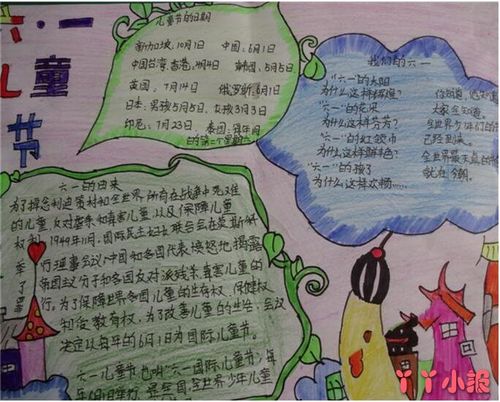 六一
儿童
节
儿童节的日期
新加坡，10月1日 中国：6月1日
中国台湾，香港：4月4日 韩国，5月5日
英国，7月14日 俄罗斯：6月1日
日本：男孩5月5日，女孩3月3日
印尼：7月23日，泰国：每年1月
的第二个星期六
我们的六一
"六一"的太阳
为什么这样辉煌？
"六一"的花朵
为什么这样芬芳？
"六一"的红领巾
为什么这样鲜丰色？
"六一"的孩子
为什么这样欢畅……
你知道，他知道
大家全知道
全世界少年们的节
已经到来
全世界最天真的
就在今朝。
六一的由来
为了悼念利迪策村和全世界所有在战争中死难
的儿童，反对虐杀和毒害儿童，以及保障儿童
权利，1949年11月，国际民主妇女联合会在莫斯科
举行理事会议，中国和各国代表愤怒地揭露
了帝国主义分子和各国反对派残杀、毒害儿童的
罪行。为了保障世界各国儿童的生存权、保健权
和受教育权，为了改善儿童的生活，会议
决定以每年的6月1日为国际儿童节。
六一儿童节，也叫"六一国际儿童节"，每
年6月1日举行，是全国、全世界少年儿童
丫丫小报